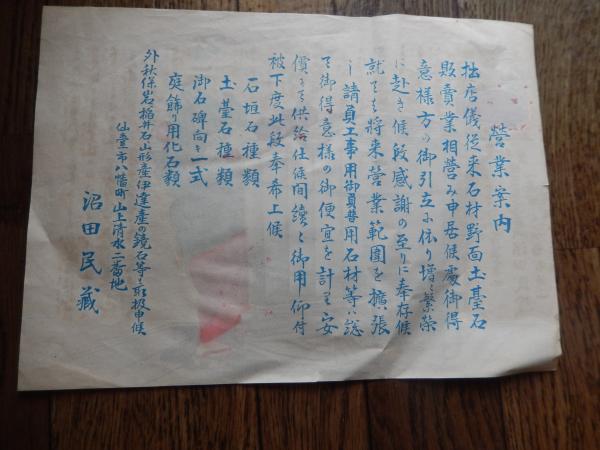 營業案内
拙店儀従来石材野面土䑓石
販賣業相營み申居候處御得
意様方の御引立に依り増〻繁榮
に赴き候段感謝の至りに奉存候
就ては將来營業範囲を擴張
し請負工事用御員普用石材等は総
て御得意様の御便宜を計り安
價にて供給仕候間續〻御用仰付
被下度此段奉希上候
石垣石種類
土䑓石種類
御石碑向き一式
庭飾り用化石類
外秋保岩稲井石山形産伊達産の鏡石等も取扱申候
仙䑓市八幡町山上清水二番地
沼田民藏